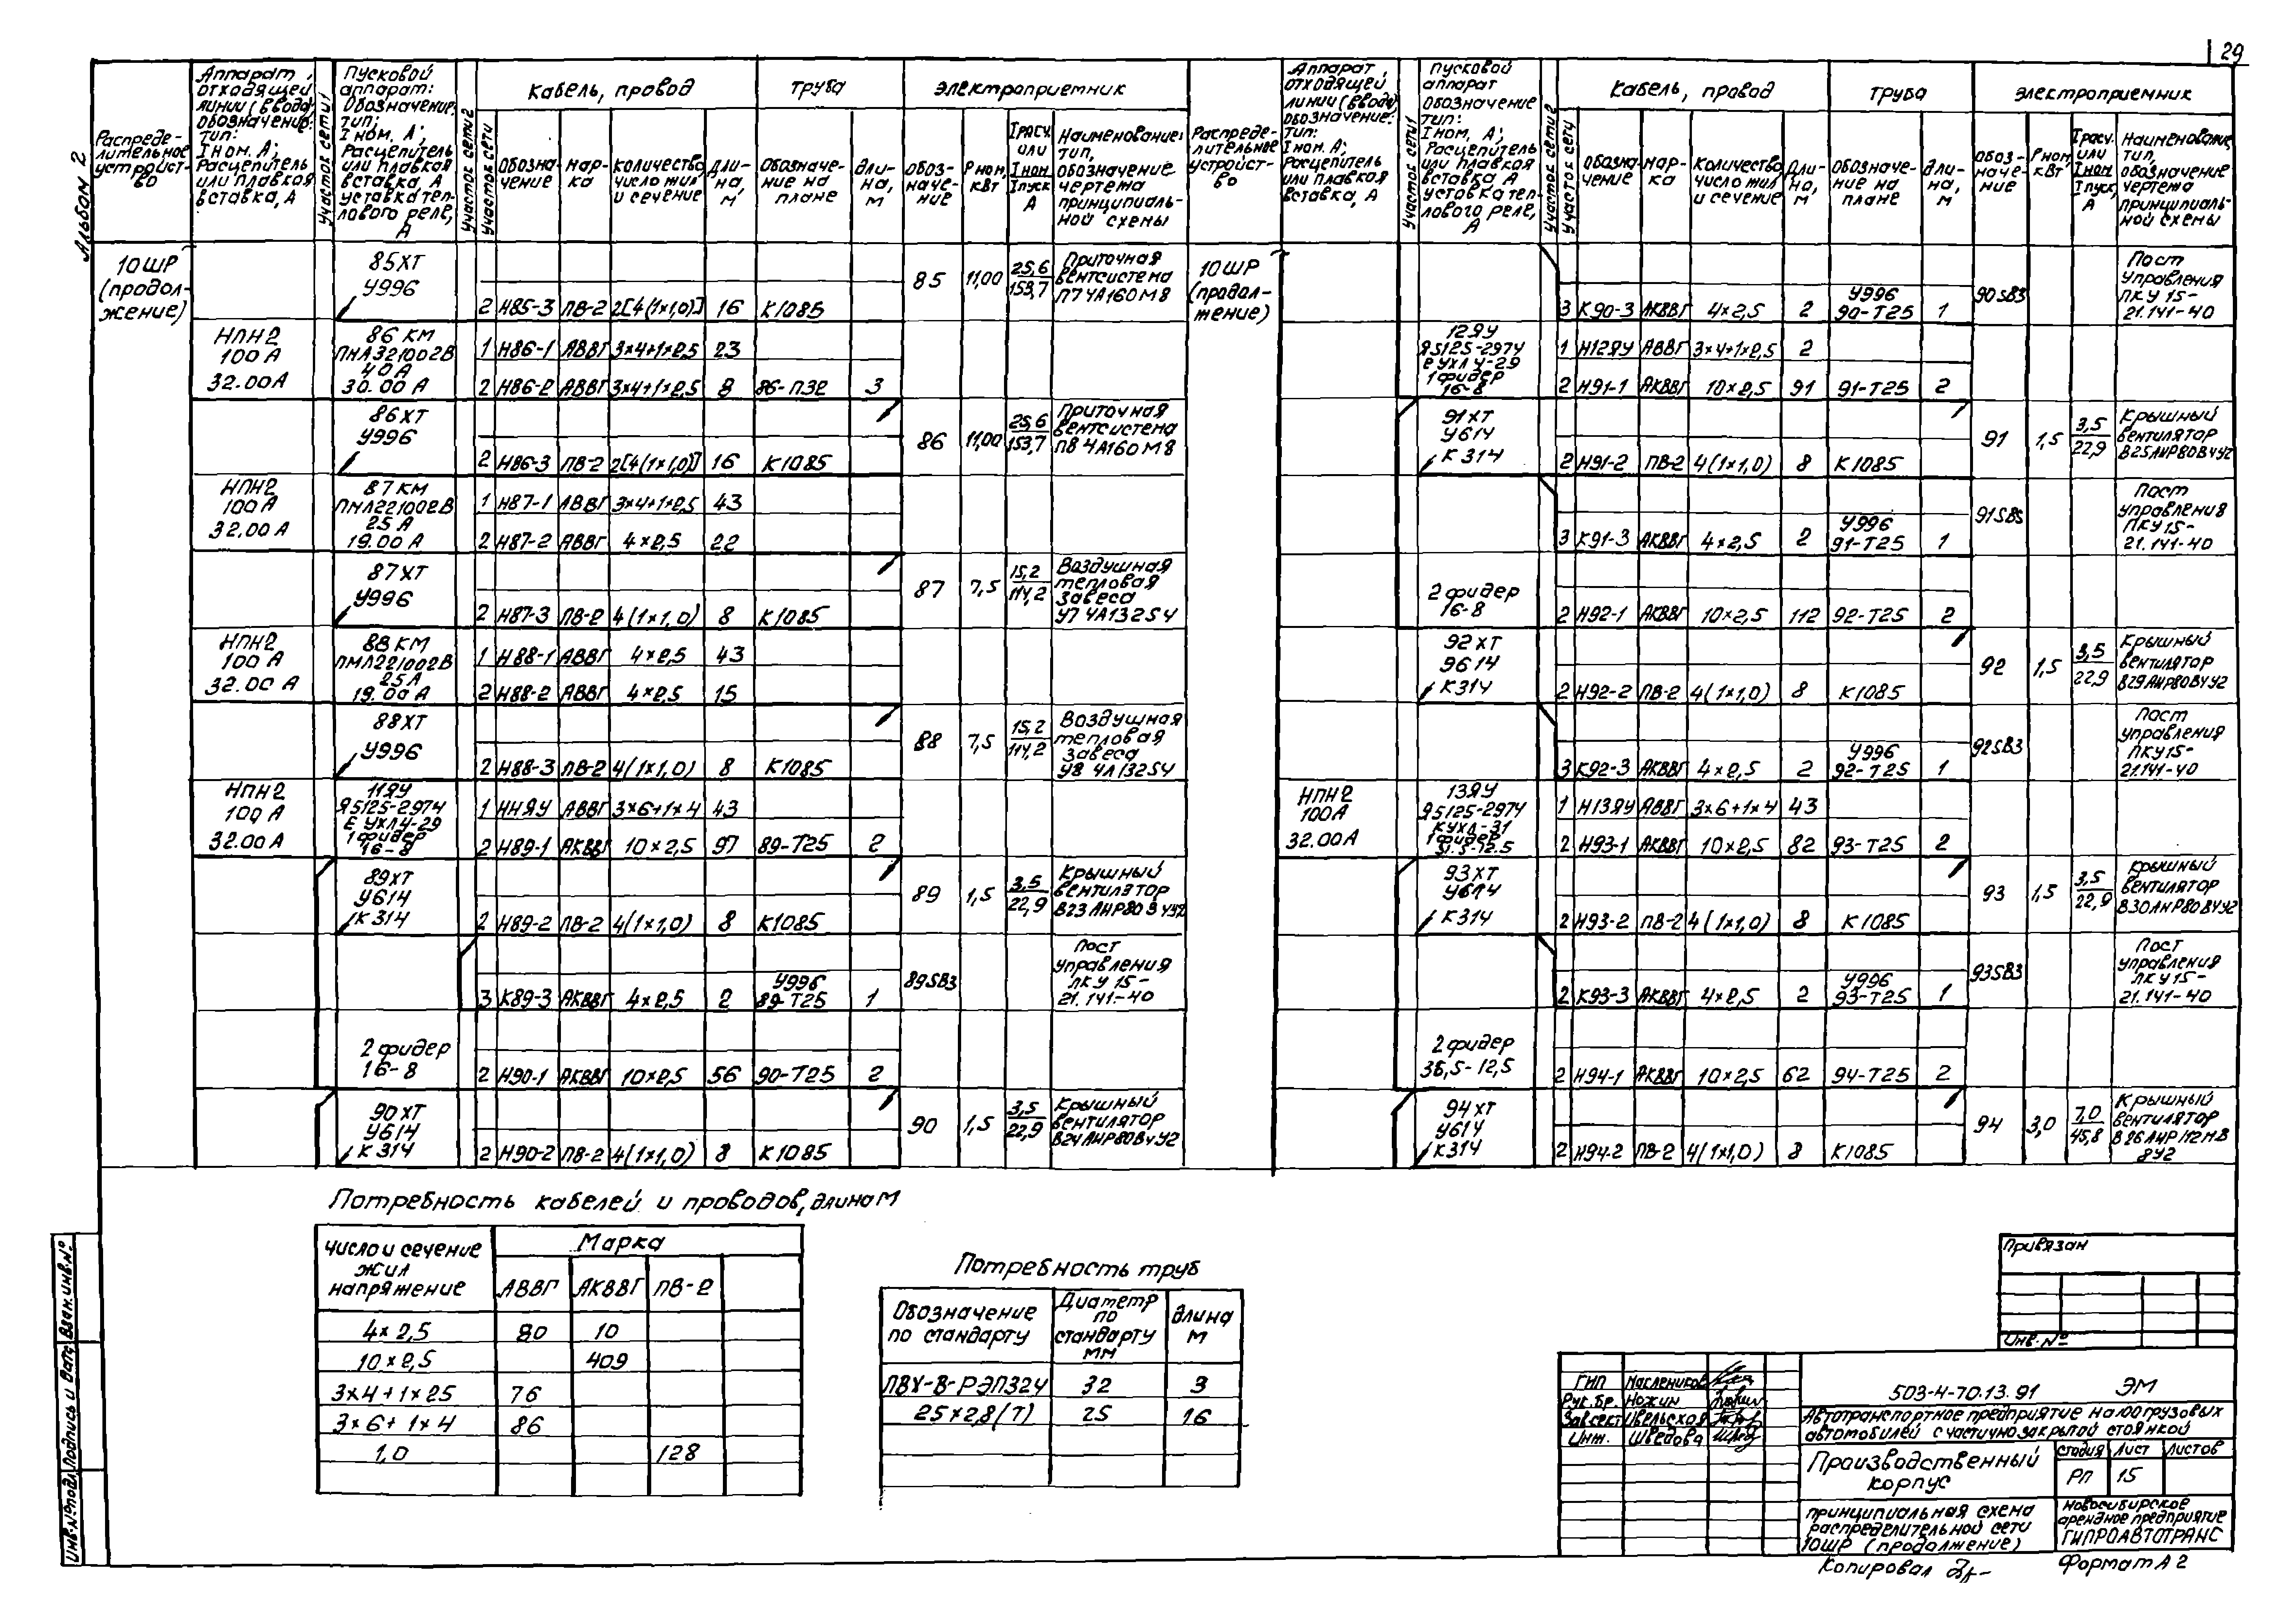 29
Альбом 2
Распределительное устройство
Аппарат отходящей линии (ввода) обозначение; тип; Iном. А; Расцепитель или плавкая вставка, А
Участок сети 1
Пусковой аппарат: Обозначение; тип; Iном, А; Расцепитель или плавкая вставка, А уставка теплового реле, А
Участок сети 2
Участок сети
Кабель, провод
Обозначение
Марка
Количество, число жил и сечение
Длина, м
Труба
Обозначение на плане
Длина, м
Электроприемник
Обозначение
Pном, кВт
Iрасч. или Iном Iпуск А
Наименование; тип, обозначение чертежа принципиальной схемы
10ШР (продолжение)
85ХТ У996
2 Н85-3 ПВ-2 2[4(1×1,0)] 16 К1085
85 11,00 25,6 153,7 Приточная вентсистема П7 4А160М8
НПН2 100А 32.00А
86КМ ПМЛ321002В 40А 30.00А
1 Н86-1 АВВГ 3×4+1×2,5 23
2 Н86-2 АВВГ 3×4+1×2,5 8 86-П32 3
86ХТ У996
2 Н86-3 ПВ-2 2[4(1×1,0)] 16 К1085
86 11,00 25,6 153,7 Приточная вентсистема П8 4А160М8
НПН2 100А 32.00А
87КМ ПМЛ221002В 25А 19.00А
1 Н87-1 АВВГ 3×4+1×2,5 43
2 Н87-2 АВВГ 4×2,5 22
87ХТ У996
2 Н87-3 ПВ-2 4(1×1,0) 8 К1085
87 7,5 15,2 114,2 Воздушная тепловая завеса У7 4А132S4
НПН2 100А 32.00А
88КМ ПМЛ221002В 25А 19.00А
1 Н88-1 АВВГ 4×2,5 43
2 Н88-2 АВВГ 4×2,5 15
88ХТ У996
2 Н88-3 ПВ-2 4(1×1,0) 8 К1085
88 7,5 15,2 114,2 Воздушная тепловая завеса У8 4А132S4
НПН2 100А 32.00А
11ЯУ Я5125-2974 Е УХЛ4-29 1фидер 16-8
1 Н11ЯУ АВВГ 3×6+1×4 43
2 Н89-1 АКВВГ 10×2,5 97 89-Т25 2
89ХТ У614 К314
2 Н89-2 ПВ-2 4(1×1,0) 8 К1085
89 1,5 3,5 22,9 Крышный вентилятор В23 АИР80В4У2
3 К89-3 АКВВГ 4×2,5 2 У996 89-Т25 1
89SB3 Пост управления ПКУ15-21.141-40
2 фидер 16-8
2 Н90-1 АКВВГ 10×2,5 56 90-Т25 2
90ХТ У614 К314
2 Н90-2 ПВ-2 4(1×1,0) 8 К1085
90 1,5 3,5 22,9 Крышный вентилятор В24 АИР80В4У2
Распределительное устройство
Аппарат отходящей линии (ввода) обозначение; тип; Iном. А; Расцепитель или плавкая вставка, А
Участок сети 1
Пусковой аппарат Обозначение тип; Iном, А; Расцепитель или плавкая вставка А уставка теплового реле, А
Участок сети 2
Участок сети
Кабель, провод
Обозначение
Марка
Количество, число жил и сечение
Длина, м
Труба
Обозначение на плане
Длина, м
Электроприемник
Обозначение
Pном, кВт
Iрасч. или Iном Iпуск, А
Наименование, тип, обозначение чертежа принципиальной схемы
10ШР (продолжение)
3 К90-3 АКВВГ 4×2,5 2 У996 90-Т25 1
90SB3 Пост управления ПКУ15-21.141-40
12ЯУ Я5125-2974 Е УХЛ4-29 1фидер 16-8
1 Н12ЯУ АВВГ 3×4+1×2,5 2
2 Н91-1 АКВВГ 10×2,5 91 91-Т25 2
91ХТ У614 К314
2 Н91-2 ПВ-2 4(1×1,0) 8 К1085
91 1,5 3,5 22,9 Крышный вентилятор В25АИР80В4У2
3 К91-3 АКВВГ 4×2,5 2 У996 91-Т25 1
91SB5 Пост управления ПКУ15-21.141-40
2 фидер 16-8
2 Н92-1 АКВВГ 10×2,5 112 92-Т25 2
92ХТ 9614 К314
2 Н92-2 ПВ-2 4(1×1,0) 8 К1085
92 1,5 3,5 22,9 Крышный вентилятор В29АИР80В4У2
3 К92-3 АКВВГ 4×2,5 2 У996 92-Т25 1
92SB3 Пост управления ПКУ15-21.141-40
НПН2 100А 32.00А
13ЯУ Я5125-2974 КУХЛ-31 1фидер
1 Н13ЯУ АВВГ 3×6+1×4 43
2 Н93-1 АКВВГ 10×2,5 82 93-Т25 2
93ХТ У614 К314
2 Н93-2 ПВ-2 4(1×1,0) 8 К1085
93 1,5 3,5 22,9 Крышный вентилятор В30АИР80В4У2
2 К93-3 АКВВГ 4×2,5 2 У996 93-Т25 1
93SB3 Пост управления ПКУ15-21.141-40
2 фидер 36,5-12,5
2 Н94-1 АКВВГ 10×2,5 62 94-Т25 2
94ХТ У614 К314
2 Н94-2 ПВ-2 4(1×1,0) 8 К1085
94 3,0 7,0 45,8 Крышный вентилятор В26АИР112МВ 8У2
Потребность кабелей и проводов, длина м
Число и сечение жил напряжение
Марка
АВВГ АКВВГ ПВ-2
4×2,5 80 10
10×2,5 409
3×4+1×25 76
3×6+1×4 86
1,0 128
Потребность труб
Обозначение по стандарту
Диаметр по стандарту мм
Длина м
ПВХ-В-РЭП32У 32 3
25×2,8(Т) 25 16
Привязан
Инв. №
ГИП Маслеников
Рук.бр. Ножин
Зав.сект Цвельская
Инж. Шведова
503-4-70.13.91 ЭМ
Автотранспортное предприятие на 100 грузовых
автомобилей с частично закрытой стоянкой
Производственный
корпус
Стадия Лист Листов
РП 15
Принципиальная схема
распределительной сети
10ШР (продолжение)
Новосибирское
арендное предприятие
ГИПРОАВТОТРАНС
Копировал
Формат А2
Инв.№подл. Подпись и дата Взам.инв.№